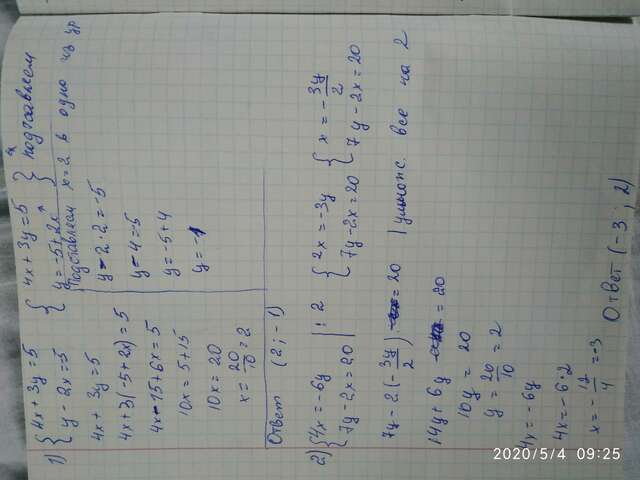 1) { 4x + 3y = 5
y - 2x = 5
{ 4x + 3y = 5
y = -5 + 2x } подставляем
4x + 3y = 5
4x + 3(-5 + 2x) = 5
4x - 15 + 6x = 5
10x = 5 + 15
10x = 20
x = 20/10 = 2
Подставляем x = 2 в одно из ур
y - 2·2 = -5
y - 4 = -5
y = -5 + 4
y = -1
Ответ (2; -1)
2) { 4x = -6y | : 2
7y - 2x = 20
{ 2x = -3y
7y - 2x = 20
{ x = - 3y/2
7y - 2x = 20
7y - 2·(- 3y/2) = 20 | умнож. все на 2
14y + 6y = 20
10y = 20
y = 20/10 = 2
4x = -6y
4x = -6·2
x = - 12/4 = -3
Ответ (-3; 2)
2020/5/4 09:25